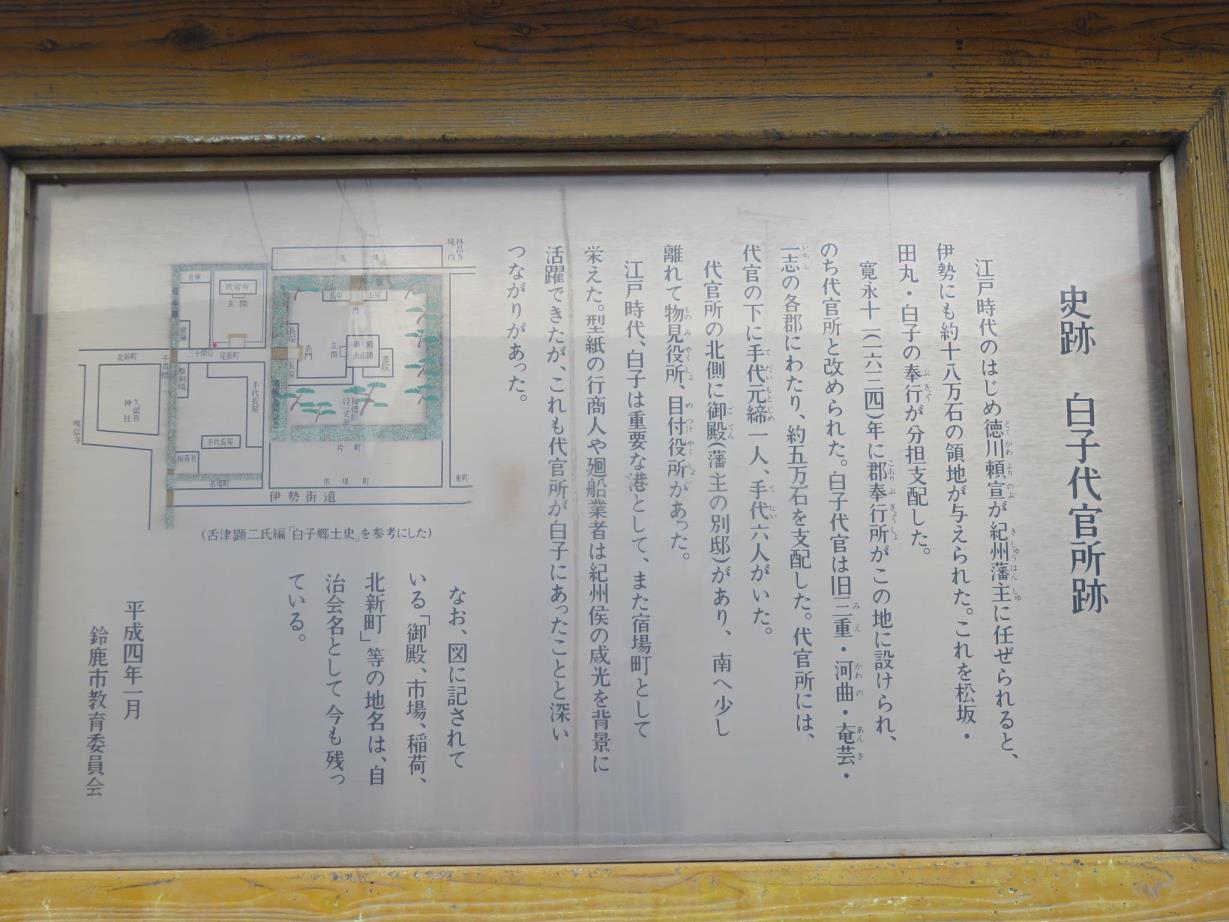 史跡　白子代官所跡
江戸時代のはじめ徳川頼宣が紀州藩主に任ぜられると、
伊勢にも約十八万石の領地が与えられた。これを松坂・
田丸・白子の奉行が分担支配した。
寛永十一(一六三四)年に郡奉行所がこの地に設けられ、
のち代官所と改められた。白子代官は旧三重・河曲・奄芸・
一志の各郡にわたり、約五万石を支配した。代官所には、
代官の下に手代元締一人、手代六人がいた。
代官所の北側に御殿(藩主の別邸)があり、南へ少し
離れて物見役所、目付役所があった。
江戸時代、白子は重要な港として、また宿場町として
栄えた。型紙の行商人や廻船業者は紀州侯の威光を背景に
活躍できたが、これも代官所が白子にあったことと深い
つながりがあった。
林昌寺
境内
長屋
門
表門
玄関
書院
代官所
玄関
北新町
手代長屋
手代長屋
稲荷社
久留真
神社
唯信寺
市場町
片町
市場町
東町
伊勢街道
(舌津顕二氏編「白子郷土史」を参考にした)
なお、図に記されて
いる「御殿、市場、稲荷、
北新町」等の地名は、自
治会名として今も残っ
ている。
平成四年一月
鈴鹿市教育委員会